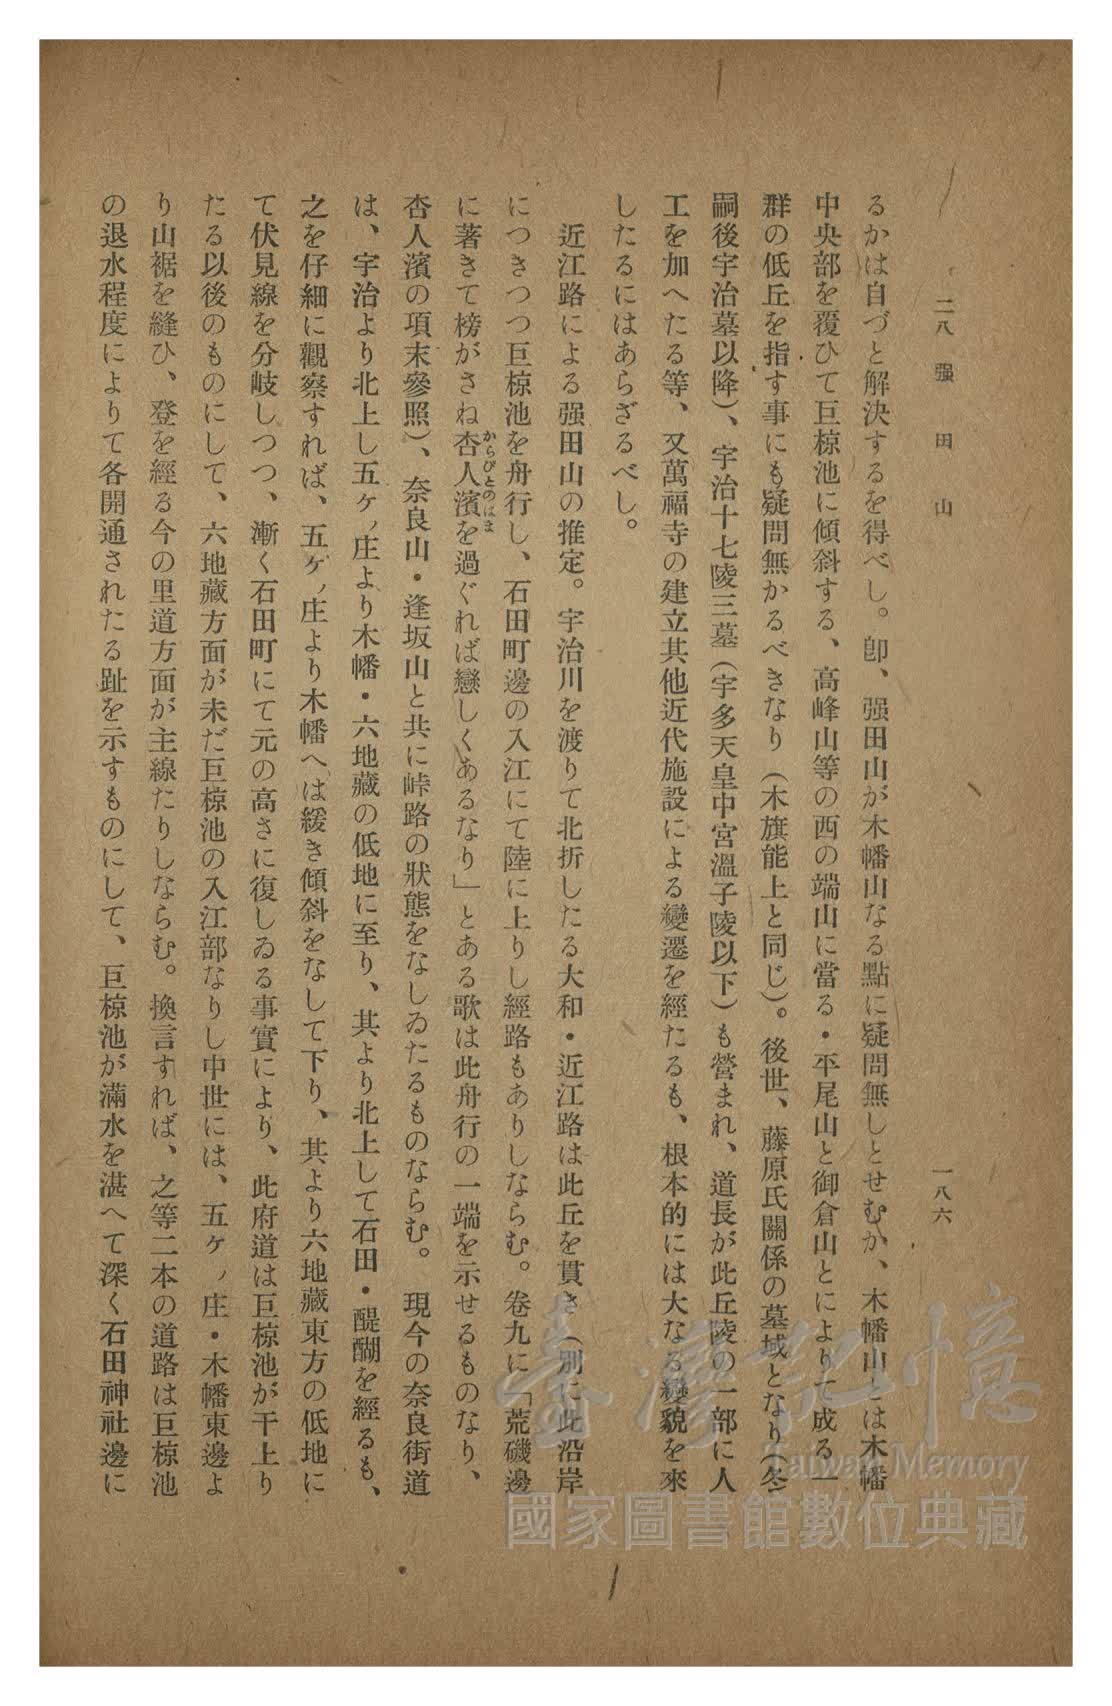 二八 强田山
一八六
るかは自づと解決するを得べし。卽、强田山が木幡山なる點に疑問無しとせむか、木幡山とは木幡
中央部を覆ひて巨椋池に傾斜する、高峰山等の西の端山に當る・平尾山と御倉山とによりて成る一
群の低丘を指す事にも疑問無かるべきなり（木旗能上と同じ）。後世、藤原氏關係の墓域となり（冬
嗣後宇治墓以降）、宇治十七陵三墓（宇多天皇中宮溫子陵以下）も營まれ、道長が此丘陵の一部に人
工を加へたる等、又萬福寺の建立其他近代施設による變遷を經たるも、根本的には大なる變貌を來
したるにはあらざるべし。
近江路による强田山の推定。宇治川を渡りて北折したる大和・近江路は此丘を貫き（別に此沿岸
につきつつ巨椋池を舟行し、石田町邊の入江にて陸に上りし經路もありしならむ。卷九に「荒磯邊
に著きて榜がさね杏人濱を過ぐれば戀しくあるなり」とある歌は此舟行の一端を示せるものなり、
からびとのはま
杏人濱の項末參照）、奈良山・逢坂山と共に峠路の狀態をなしゐたるものならむ。現今の奈良街道
は、宇治より北上し五ケノ庄より木幡・六地藏の低地に至り、其より北上して石田・醍醐を經るも、
之を仔細に觀察すれば、五ケノ庄より木幡へは緩き傾斜をなして下り、其より六地藏東方の低地に
て伏見線を分岐しつつ、漸く石田町にて元の高さに復しゐる事實により、此府道は巨椋池が干上り
たる以後のものにして、六地藏方面が未だ巨椋池の入江部なりし中世には、五ケノ庄・木幡東邊よ
り山裾を縫ひ、登を經る今の里道方面が主線たりしならむ。換言すれば、之等二本の道路は巨椋池
の退水程度によりて各開通されたる趾を示すものにして、巨椋池が滿水を湛へて深く石田神社邊に
臺灣記憶
Taiwan Memory
國家圖書館數位典藏